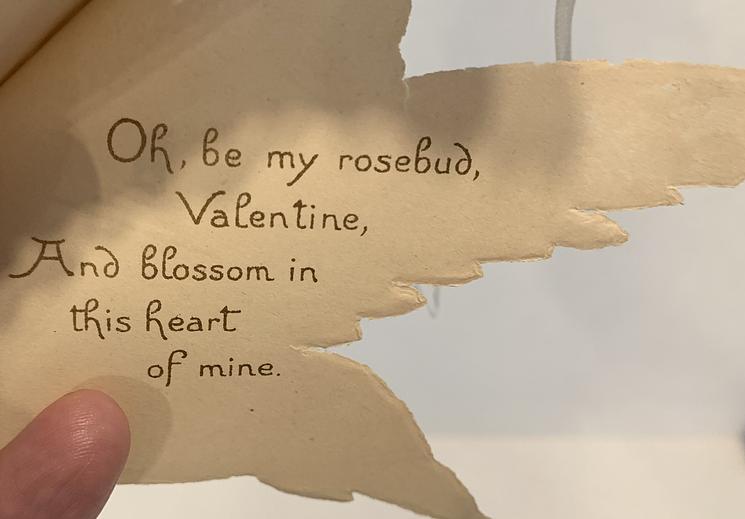 Oh, be my rosebud,
Valentine,
And blossom in
this heart
of mine.